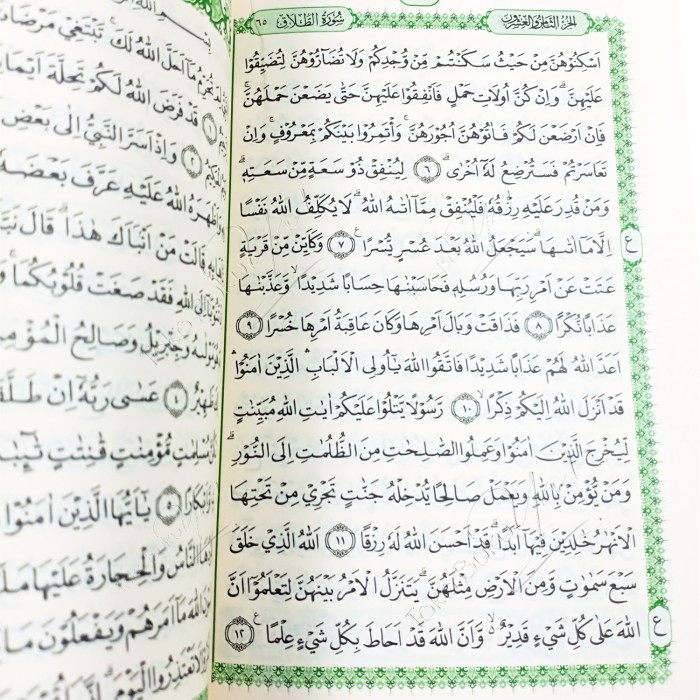 الجزء الثامن والعشرون
سورة الطلاق
٦٥
اَسْكِنُوْهُنَّ مِنْ حَيْثُ سَكَنْتُمْ مِّنْ وُّجْدِكُمْ وَلَا تُضَاۤرُّوْهُنَّ لِتُضَيِّقُوْا
عَلَيْهِنَّۗ وَاِنْ كُنَّ اُولَاتِ حَمْلٍ فَاَنْفِقُوْا عَلَيْهِنَّ حَتّٰى يَضَعْنَ حَمْلَهُنَّۚ
فَاِنْ اَرْضَعْنَ لَكُمْ فَاٰتُوْهُنَّ اُجُوْرَهُنَّۚ وَأْتَمِرُوْا بَيْنَكُمْ بِمَعْرُوْفٍۚ وَاِنْ
تَعَاسَرْتُمْ فَسَتُرْضِعُ لَهٗٓ اُخْرٰىۗ ٦ لِيُنْفِقْ ذُوْ سَعَةٍ مِّنْ سَعَتِهٖۗ
وَمَنْ قُدِرَ عَلَيْهِ رِزْقُهٗ فَلْيُنْفِقْ مِمَّآ اٰتٰىهُ اللّٰهُۗ لَا يُكَلِّفُ اللّٰهُ نَفْسًا
اِلَّا مَآ اٰتٰىهَاۗ سَيَجْعَلُ اللّٰهُ بَعْدَ عُسْرٍ يُّسْرًا ٧ وَكَاَيِّنْ مِّنْ قَرْيَةٍ
عَتَتْ عَنْ اَمْرِ رَبِّهَا وَرُسُلِهٖ فَحَاسَبْنٰهَا حِسَابًا شَدِيْدًاۙ وَّعَذَّبْنٰهَا
عَذَابًا نُّكْرًا ٨ فَذَاقَتْ وَبَالَ اَمْرِهَا وَكَانَ عَاقِبَةُ اَمْرِهَا خُسْرًا ٩
اَعَدَّ اللّٰهُ لَهُمْ عَذَابًا شَدِيْدًا فَاتَّقُوا اللّٰهَ يٰٓاُولِى الْاَلْبَابِۛ الَّذِيْنَ اٰمَنُوْاۛ
قَدْ اَنْزَلَ اللّٰهُ اِلَيْكُمْ ذِكْرًاۙ ١٠ رَّسُوْلًا يَّتْلُوْا عَلَيْكُمْ اٰيٰتِ اللّٰهِ مُبَيِّنٰتٍ
لِّيُخْرِجَ الَّذِيْنَ اٰمَنُوْا وَعَمِلُوا الصّٰلِحٰتِ مِنَ الظُّلُمٰتِ اِلَى النُّوْرِۗ
وَمَنْ يُّؤْمِنْۢ بِاللّٰهِ وَيَعْمَلْ صَالِحًا يُّدْخِلْهُ جَنّٰتٍ تَجْرِيْ مِنْ تَحْتِهَا
الْاَنْهٰرُ خٰلِدِيْنَ فِيْهَآ اَبَدًاۗ قَدْ اَحْسَنَ اللّٰهُ لَهٗ رِزْقًا ١١ اَللّٰهُ الَّذِيْ خَلَقَ
سَبْعَ سَمٰوٰتٍ وَّمِنَ الْاَرْضِ مِثْلَهُنَّۗ يَتَنَزَّلُ الْاَمْرُ بَيْنَهُنَّ لِتَعْلَمُوْٓا اَنَّ
اللّٰهَ عَلٰى كُلِّ شَيْءٍ قَدِيْرٌ ۙ وَّاَنَّ اللّٰهَ قَدْ اَحَاطَ بِكُلِّ شَيْءٍ عِلْمًا ࣖ ١٢
ع
ع
مَآ اَحَلَّ اللّٰهُ لَكَۚ تَبْتَغِيْ مَرْضَاتَ
١ قَدْ فَرَضَ اللّٰهُ لَكُمْ تَحِلَّةَ
٢ وَاِذْ اَسَرَّ النَّبِيُّ اِلٰى بَعْضِ
وَاَظْهَرَهُ اللّٰهُ عَلَيْهِ عَرَّفَ بَعْضَهٗ
قَالَتْ مَنْ اَنْۢبَاَكَ هٰذَاۗ قَالَ
اِلَى اللّٰهِ فَقَدْ صَغَتْ قُلُوْبُكُمَاۚ
وَجِبْرِيْلُ وَصَالِحُ
٤ عَسٰى رَبُّهٗٓ اِنْ
مُّؤْمِنٰتٍ قٰنِتٰتٍ
٥ يٰٓاَيُّهَا الَّذِيْنَ اٰمَنُوْا
النَّاسُ وَالْحِجَارَةُ عَلَيْهَا
اللّٰهَ مَآ اَمَرَهُمْ وَيَفْعَلُوْنَ مَا
تَعْتَذِرُوا الْيَوْمَۗ